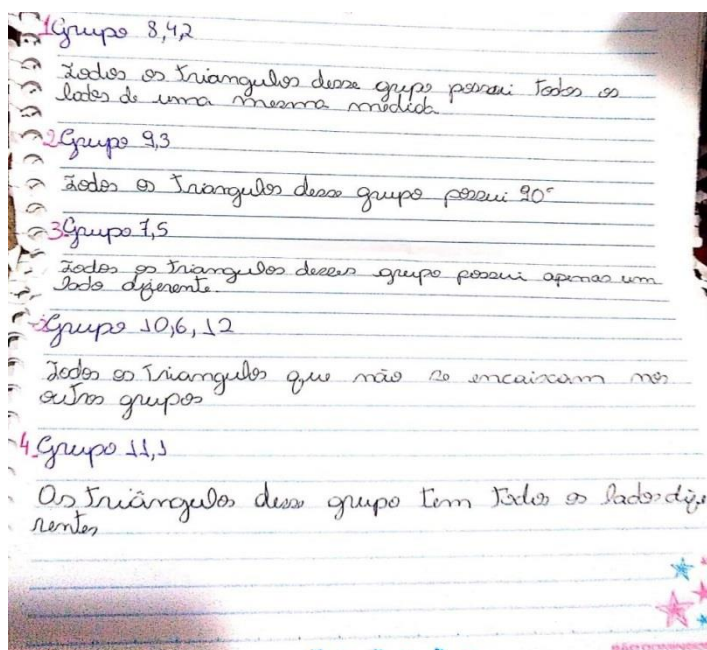 1 Grupo 8,4,2
Todos os triangulos desse grupo possui todos os
lados de uma mesma medida
2 Grupo 9,3
Todos os Triangulos desse grupo possui 90°
3 Grupo 7,5
Todos os triangulos desses grupo possui apenas um
lado diferente.
Grupo 10,6,12
Todos os Triangulos que não se encaixam nos
outros grupos
4 Grupo 11,1
Os Triângulos desse grupo tem Todos os lados dife
rentes